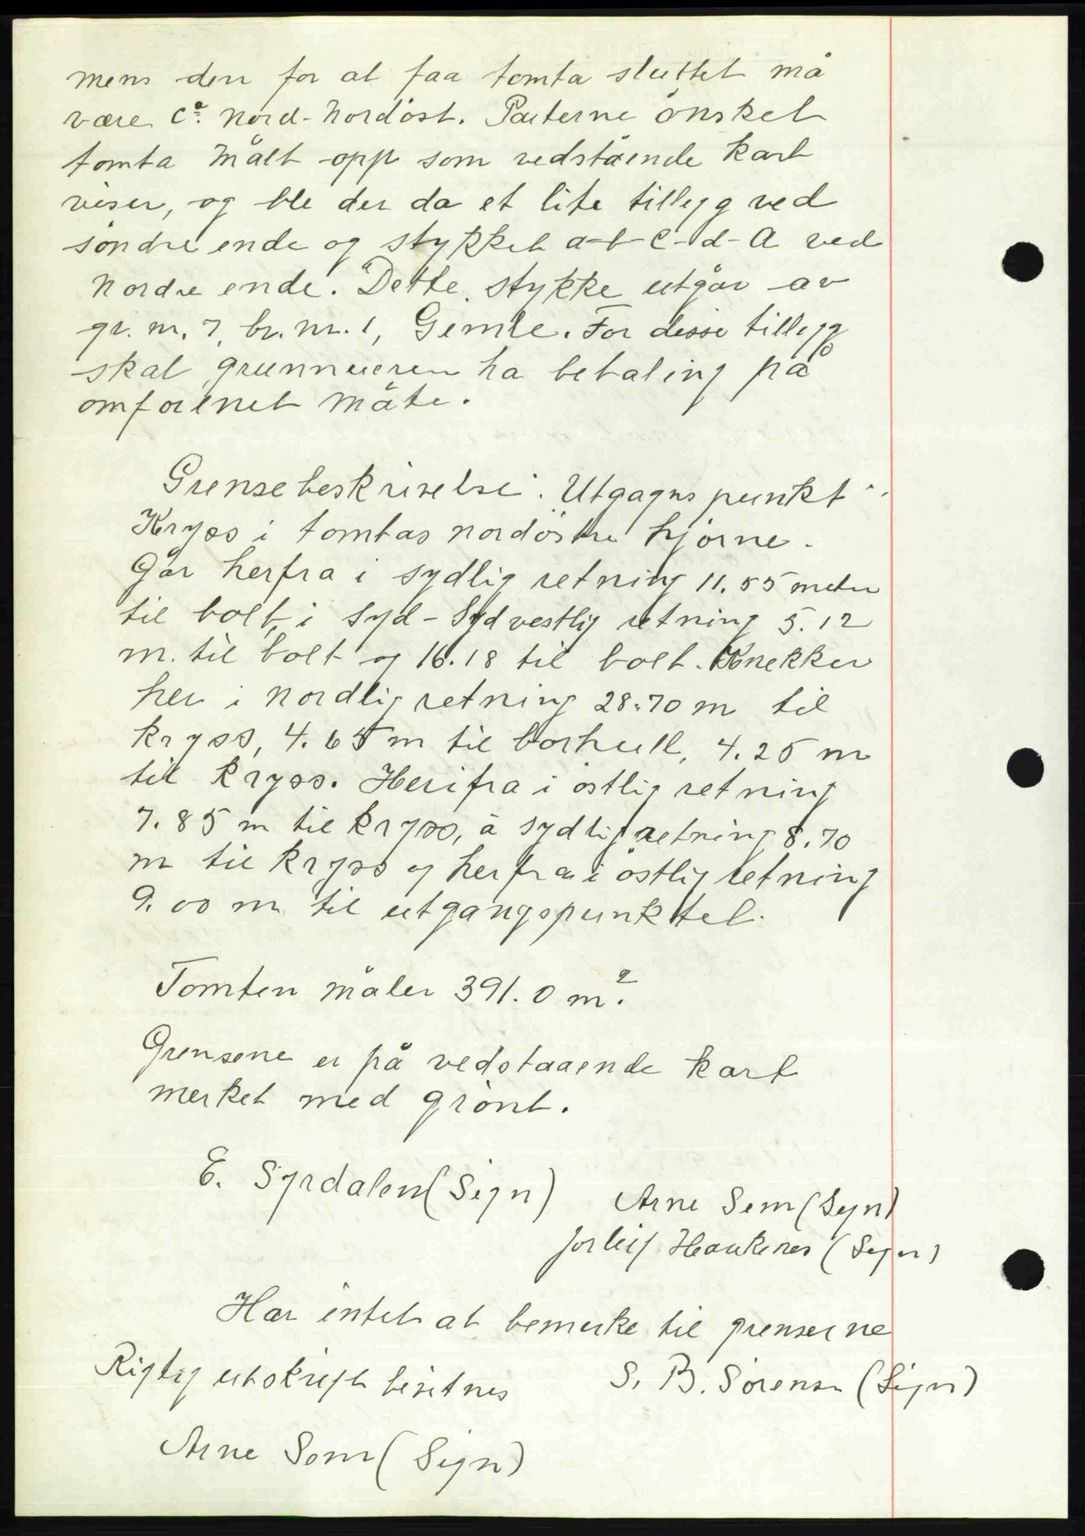 mens den for at faa tomta sluttet må
være cª. nord-nordöst. Parterne önsket
tomta målt opp som vedstående kart
viser, og ble der da et lite tillegg ved
söndre ende og stykket a-b-c-d-a ved
nordre ende. Dette stykke utgår av
gr. nr. 7, br. nr. 1, Gimle. For disse tillegg
skal grunneieren ha betaling på
omforenet måte.
Grensebeskrivelse. Utgagnspunkt
Kryss i tomtas nordöstre hjörne.
Går herfra i sydlig retning 11.55 meter
til bolt, i syd-sydvestlig retning 5.12
m. til bolt og 16.18 til bolt. Knekker
her i nordlig retning 28.70 m til
kryss, 4.65 m til borhull, 4.25 m
til kryss. Herifra i östlig retning
7.85 m til kryss, i sydlig retning 8.70
m til kryss og herfra i östlig retning
9.00 m til utgangspunktet.
Tomten måler 391.0 m².
Grensene er på vedstaaende kart
merket med grönt.
E. Syrdalen (Sign)
Arne Sem (Sign)
Haukenes (Sign)
Har intet at bemerke til grenserne
S. B. Sörensen (Sign)
Rigtig utskrift bevitnes
Arne Sem (Sign)